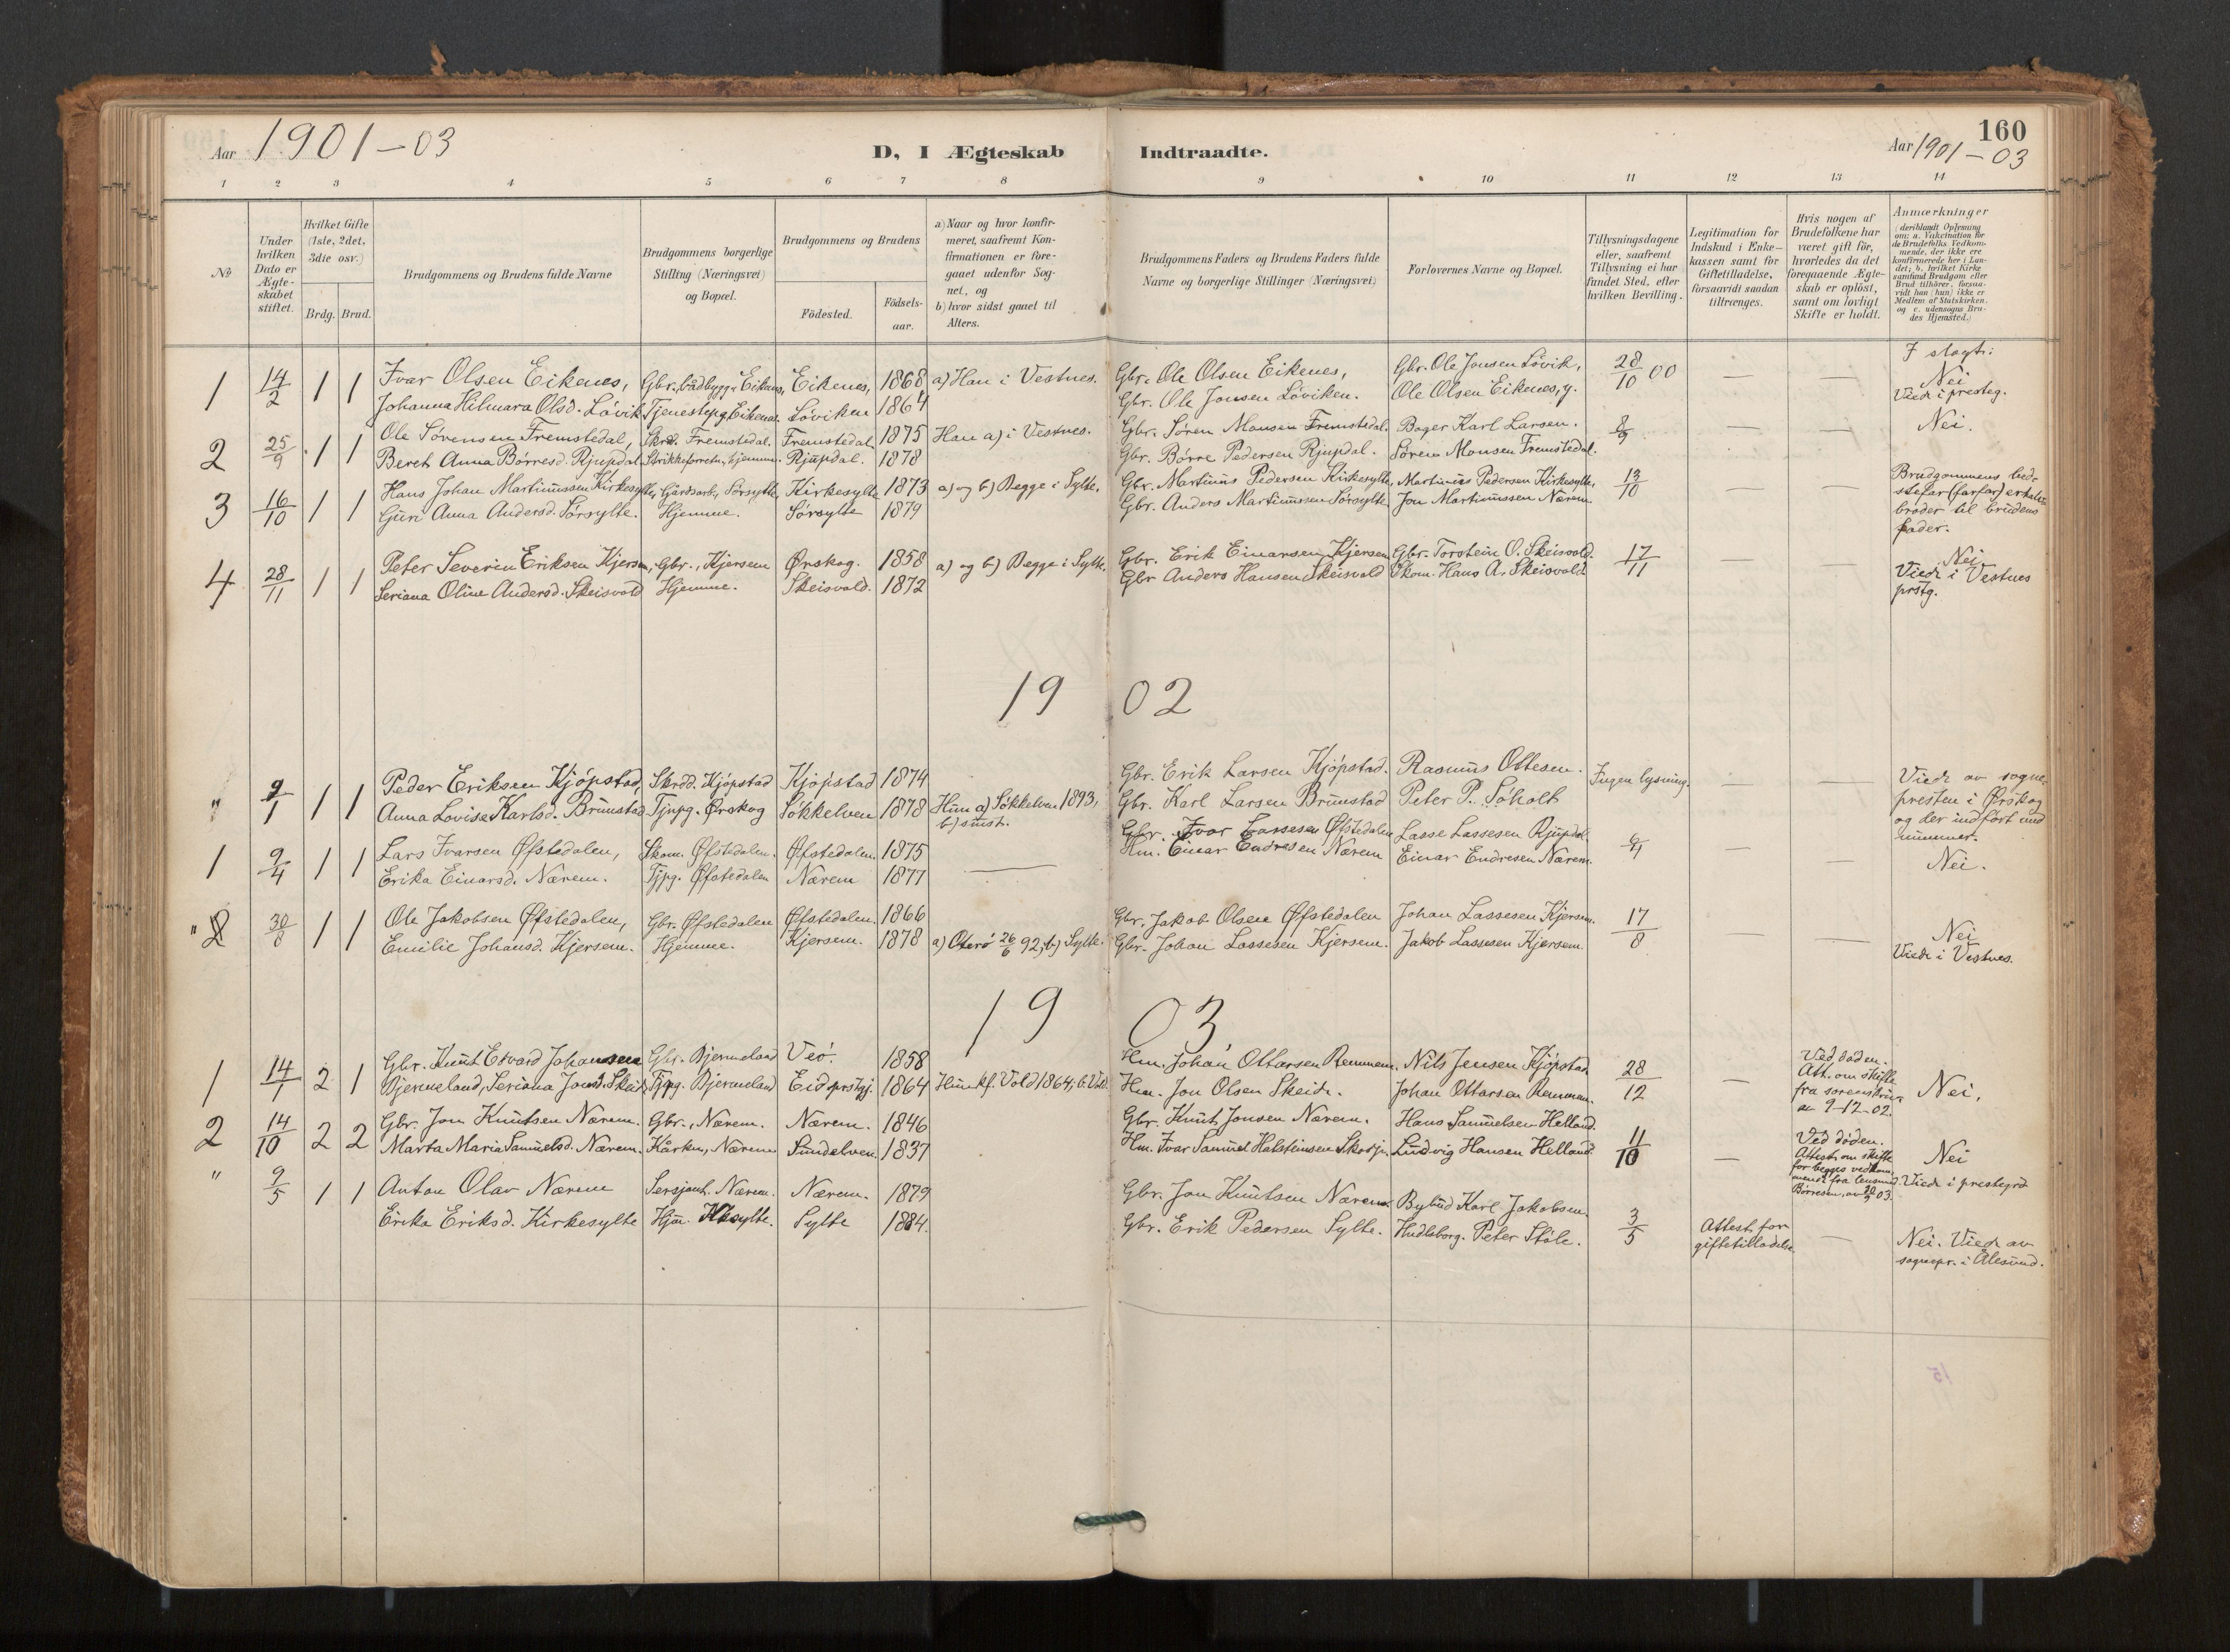 160
Aar 1901-03
D, I Ægteskab Indtraadte.
Aar 1901-03
1 2 3 4 5 6 7 8 9 10 11 12 13 14
No
Under hvilken Dato er Ægte-skabet stiftet.
Hvilket Gifte (1ste, 2det, 3die osv.)
Brdg. Brud.
Brudgommens og Brudens fulde Navne
Brudgommens borgerlige Stilling (Næringsvei) og Bopæl.
Brudgommens og Brudens
Födested.
Födsels-aar.
a) Naar og hvor konfir-
meret, saafremt Kon-
firmationen er fore-
gaaet udenfor Sog-
net, og
b) hvor sidst gaaet til
Alters.
Brudgommens Faders og Brudens Faders fulde
Navne og borgerlige Stillinger (Næringsvei)
Forlovernes Navne og Bopæl.
Tillysningsdagene
eller, saafremt
Tillysning ei har
fundet Sted, efter
hvilken Bevilling.
Legitimation for
Indskud i Enke-
kassen samt for
Giftetilladelse,
forsaavidt saadan
tiltrænges.
Hvis nogen af
Brudefolkene har
været gift för,
hvorledes da det
foregaaende Ægte-
skab er oplöst,
samt om lovligt
Skifte er holdt.
Anmærkninger
(deriblandt Oplysning
om: a. Vakcination for
de Brudefolks Vedkom-
mende, der ikke ere
konfirmerede her i Lan-
det; b. hvilket Kirke
samfund Brudgom eller
Brud tilhører, forsaa-
vidt han (hun) ikke er
Medlem af Statskirken.
og c. udensogns Bru-
des Hjemsted.)
1 14/2 1 1 Ivar Olsen Eikenes, Gbr., bådbygg. Eikenes, Eikenes, 1868 a) Han i Vestnes. Gbr. Ole Olsen Eikenes, Gbr. Ole Jonsen Lövik, 28/10 00 I slagt:
Nei
Johanna Hilmara Olsd. Lövik Tjenestepg. Eikenes Löviken 1864 Gbr. Ole Jonsen Löviken. Ole Olsen Eikenes, y. Viede i presteg.
2 25/9 1 1 Ole Sörensen Fremstedal, Skrd. Fremstedal. Fremstedal 1875 Han a) i Vestnes. Gbr. Sören Monsen Fremstedal. Bager Karl Larsen. 8/9 Nei.
Beret Anna Börresd. Rjupdal. Strikkeforretn., hjemme. Rjupdal. 1878 Gbr. Börre Pedersen Rjupdal. Sören Monsen Fremstedal.
3 16/10 1 1 Hans Johan Martinussen Kirkesylte, Gårdsarb., Sörsylte, Kirkesylte 1873 a) og b) Begge i Sylte. Gbr. Martinus Pedersen Kirkesylte, Martinus Pedersen Kirkesylte, 13/10 Brudgommens bed-
stefar (farfar) er halv-
bröder til brudens
fader.
Guri Anna Andersd. Sörsylte. Hjemme. Sörsylte 1879 Gbr. Anders Martinussen Sörsylte Jon Martinussen Nærem
4 28/11 1 1 Peter Severin Eriksen Kjersem, Gbr., Kjersem Ørskog. 1858 a) og b) Begge i Sylte. Gbr. Erik Einarsen Kjersem Gbr. Torstein O. Skeisvold. 17/11 Nei.
Seriana Oline Andersd. Skeisvold Hjemme. Skeisvold. 1872 Gbr Anders Hansen Skeisvold Skom. Hans A. Skeisvold Viede i Vestnes
prstg.
1902
" 9/1 1 1 Peder Eriksen Kjöpstad, Skrdd. Kjöpstad Kjöpstad 1874 Gbr. Erik Larsen Kjöpstad. Rasmus Ottesen. Ingen lysning. Viede av sogne-
presten i Ørskog
og der indfört med
nummer.
Anna Lovise Karlsd. Brunstad Tjnpg. Ørskog Sökkelven 1878 Hun a) Sökkelven 1893, b) smst. Gbr. Karl Larsen Brunstad Peter P. Söholt
1 9/4 1 1 Lars Ivarsen Øfstedalen, Skom. Øfstedalen. Øfstedalen. 1875 Gbr. Ivar Lassesen Øfstedalen Lasse Lassesen Rjupdal. 6/4 Nei.
Erika Einarsd. Nærem. Tjpg. Øfstedalen Nærem 1877 Hm. Einar Endresen Nærem Einar Endresen Nærem.
" 2 30/8 1 1 Ole Jakobsen Øfstedalen, Gbr. Øfstedalen Øfstedalen. 1866 Gbr. Jakob Olsen Øfstedalen Johan Lassesen Kjersem. 17/8 Nei
Emilie Johansd. Kjersem. Hjemme. Kjersem. 1878 a) Oterö 26/6 92; b) Sylte. Gbr. Johan Lassesen Kjersem. Jakob Lassesen Kjersem. Viede i Vestnes.
1903
1 14/1 2 1 Gbr. Knut Edvard Johansen Gbr. Bjermeland Veö. 1858 Hm. Johan Ottarsen Remmem. Nils Jensen Kjöpstad 28/12 Ved döden.
Att. om skifte
fra sorenskriv.
av 9-12-02. Nei,
Bjermeland, Seriana Jonsd. Skeide Tjpg. Bjermeland Eid prstgj. 1864 Hun kf. Vold 1864; b. Vold. Hm. Jon Olsen Skeide. Johan Ottarsen Remmem.
2 14/10 2 2 Gbr. Jon Knutsen Nærem. Gbr., Nærem. Nærem. 1846 Gbr. Knut Jonsen Nærem. Hans Samuelsen Helland. 11/10 Ved döden.
Attest om skifte
for begges vedkom-
mende fra lensmd.
Börresen, av 03. Nei
Marta Maria Samuelsd. Nærem. Kårkn, Nærem Sundelven. 1837 Hm. Ivar Samuel Halsteinsen Ludvig Hansen Helland.
" 9/5 1 1 Anton Olav Nærem Sersjant. Nærem. Nærem. 1879 Gbr. Jon Knutsen Nærem Bybud Karl Jakobsen. 3/5 Attest for
giftetilladelse. Viede i prestegrd
Erika Eriksd. Kirkesylte Hjm. Sylte 1884. Gbr. Erik Pedersen Sylte. Hndlsborg. Peter Stöle. Nei. Viede av
sognepr. i Ålesund.
15